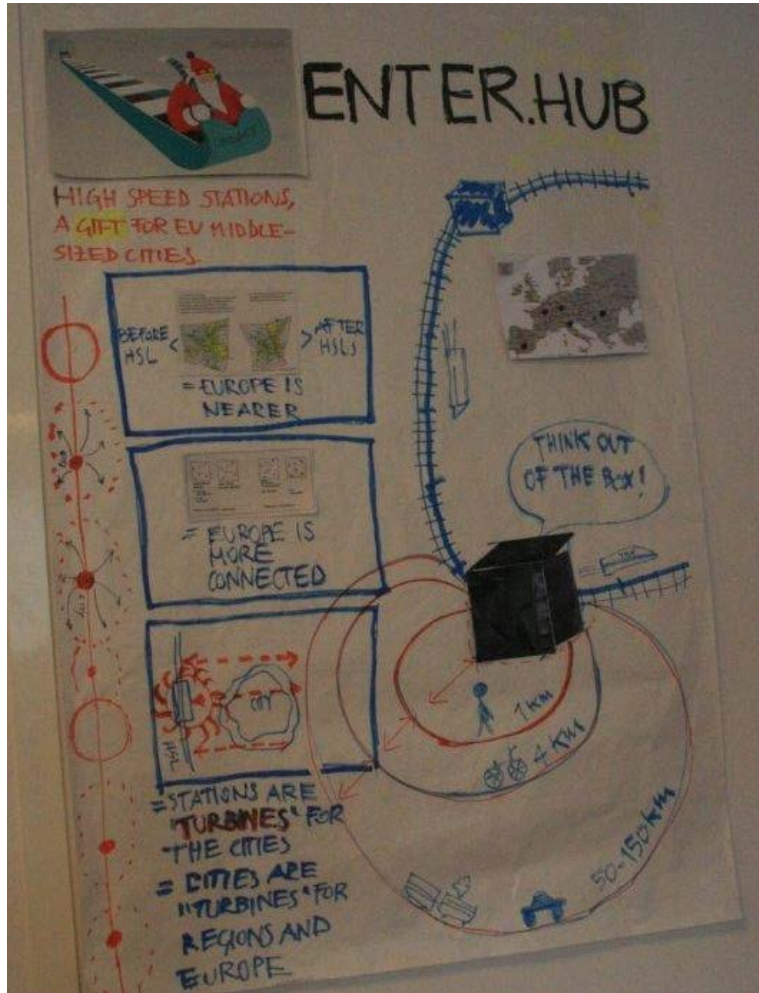 ENTER.HUB
HIGH SPEED STATIONS,
A GIFT FOR EU MIDDLE-
SIZED CITIES.
BEFORE
HSL <
> AFTER
HSLS
= EUROPE IS
NEARER
= EUROPE IS
MORE
CONNECTED
HSL
= STATIONS ARE
"TURBINES" FOR
THE CITIES
= CITIES ARE
"TURBINES" FOR
REGIONS AND
EUROPE
THINK OUT
OF THE BOX!
1 km
4 km
50-150 km